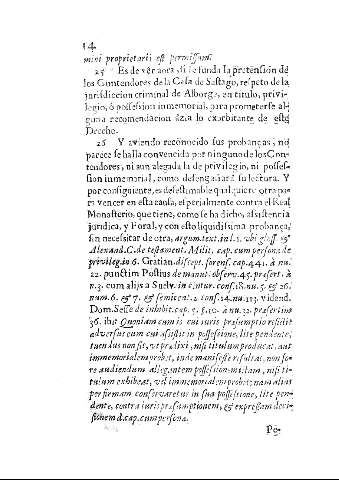 14
mini proprietarii est permissum.
25 Es de ver aora, si se funda la pretensiõ de
los Contendores de la Casa de Sastago, respeto de la
jurisdiccion criminal de Alborge, en titulo, privi-
legio, ò possession inmemorial, para prometerse al-
guna recomendacion àzia lo exorbitante de este
Drecho.
26 Y aviendo reconocido sus probanças, no
parece se halla convencida por ninguno de los Con-
tendores, ni aun alegada la de privilegio, ni posses-
sion inmemorial, como desengañarà su lectura. Y
por consiguiente, es desestimable qualquiere otra pa-
ra vencer en esta causa, especialmente contra el Real
Monasterio, que tiene, como se ha dicho, assistencia
juridica, y Foral, y con esto liquidissima probança,
sin necessitar de otra, argum. text. in l. 1. ubi gloss. &
Alexand. C. de testament. Milit. cap. cum persona de
privileg. in 6. Gratian. discept. forens. cap. 441. à nu.
22. punctim Postius de manut. observ. 45. præsert. à
n. 3. cum aliis a Suelv. in cintur. cons. 18. nu. 5. & 26.
num. 6. & 7. & semicent. 2. cons. 14. nu. 13. vidend.
Dom. Sesse de inhibit. cap. 5. §. 10. à nu. 32. præsertim
36. ibi: Quoniam cum is cui iuris præsumptio resistit
adversus eum cui assistit in possessione, lite pendente,
tuendus non sit, ut prælixi, nisi titulum producat, aut
immemorialem probet, inde manifestè resultat, non fo-
re audiendum allegantem possessionem etiam, nisi ti-
tulum exhibeat, vel immemorialem probet; nam alias
per firmam conservaretur in sua possessione, lite pen-
dente, contra iuris præsumptionem, & expressam deci-
sionem d. cap. cum persona.
Po-